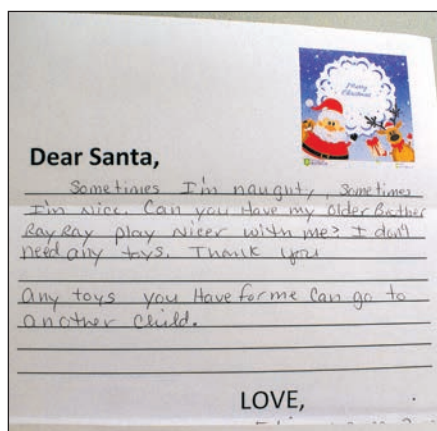 Merry
Christmas
Dear Santa,
Sometimes I'm naughty, Sometimes
I'm Nice. Can you Have my older Brother
Ray Ray play Nicer with me? I don't
need any toys. Thank you
any toys you Have for me Can go to
another Child.
LOVE,